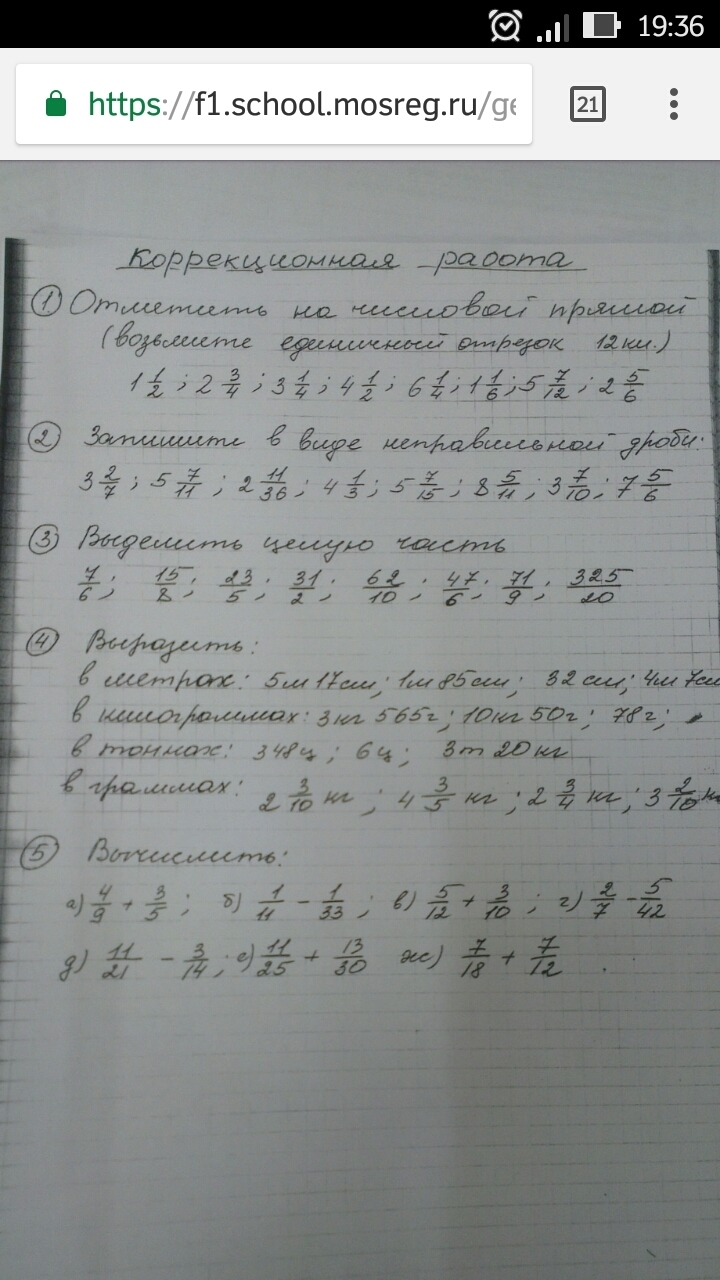 19:36
https://f1.school.mosreg.ru/ge
21
Коррекционная работа
① Отметить на числовой прямой
(возьмите единичный отрезок 12 кл.)
1 1/2 ; 2 3/4 ; 3 1/4 ; 4 1/2 ; 6 1/4 ; 1 1/6 ; 5 7/12 ; 2 5/6
② Запишите в виде неправильной дроби:
3 2/7 ; 5 7/11 ; 2 11/36 ; 4 1/3 ; 5 7/15 ; 8 5/11 ; 3 7/10 ; 7 5/6
③ Выделить целую часть
7/6 ; 15/8 ; 23/5 ; 31/2 ; 62/10 ; 47/6 ; 71/9 ; 325/20
④ Выразить:
в метрах: 5м 17см; 1м 85см; 32 см; 4м 7см
в килограммах: 3кг 565г; 10кг 50г; 78г;
в тоннах: 348ц ; 6ц ; 3т 20кг
в граммах: 2 3/10 кг ; 4 3/5 кг ; 2 3/4 кг ; 3 2/10 кг
⑤ Вычислить:
а) 4/9 + 3/5 ; б) 1/11 - 1/33 ; в) 5/12 + 3/10 ; г) 2/7 - 5/42
д) 11/21 - 3/14 ; е) 11/25 + 13/30 ж) 7/18 + 7/12 .